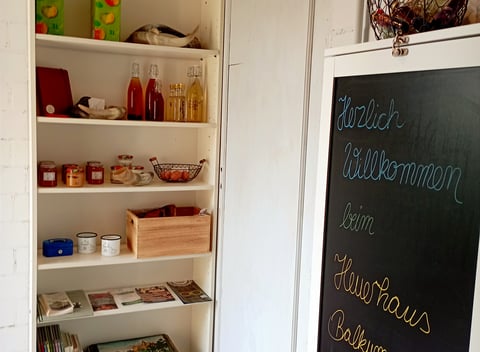 Herzlich
Willkommen
beim
Heuerhaus